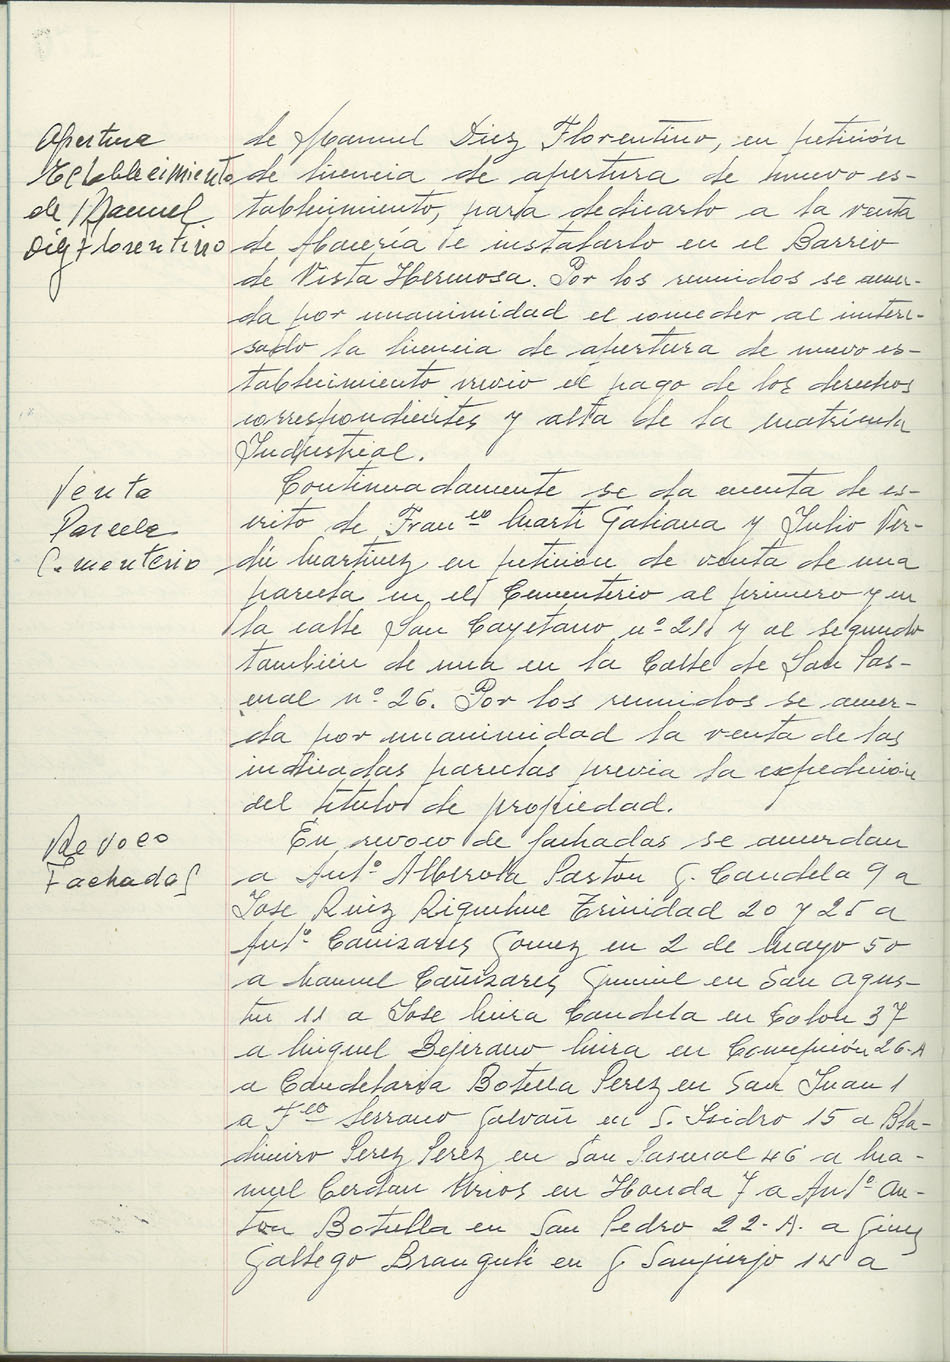 Apertura
Establecimiento
de Manuel
Díez Florentino
de Manuel Diez Florentino, en petición
de licencia de apertura de nuevo es-
tablecimiento, para dedicarlo a la venta
de Alacería e instalarlo en el Barrio
de Vista Hermosa. Por los reunidos se acuer-
da por unanimidad el conceder al intere-
sado la licencia de apertura de nuevo es-
tablecimiento previo el pago de los derechos
correspondientes y alta de la matrícula
Industrial.
Venta
Parcela
Cementerio
Continuadamente se da cuenta de es-
crito de Franco Martí Galiana y Julio Ver-
dú Martinez en petición de venta de una
parcela en el Cementerio al primero y en
la calle San Cayetano nº 211 y al segundo
también de una en la Calle de San Pas-
cual nº 26. Por los reunidos se acuer-
da por unanimidad la venta de las
indicadas parcelas previa la expedición
del título de propiedad.
Revoco
Fachadas
En revoco de fachadas se acuerdan
a Antº Alberola Pastor G. Candela 9 a
Jose Ruiz Riquelme Trinidad 20 y 25 a
Antº Cañizares Gomez en 2 de Mayo 50
a Manuel Cañizares en San Agus-
tin 11 a Jose Mira Candela en Colon 37
a Miguel Bejerano Mira en Concepción 26-A
a Candelaria Botella Perez en San Juan 1
a Fco Serrano Galvañ en S. Isidro 15 a Bla-
dimiro Perez Perez en San Pascual 46 a Ma-
nuel Cerdan Urios en Honda 7 a Antº An-
ton Botella en San Pedro 22-A. a Gines
Gallego Brangulí en G. Sanjurjo 14 a